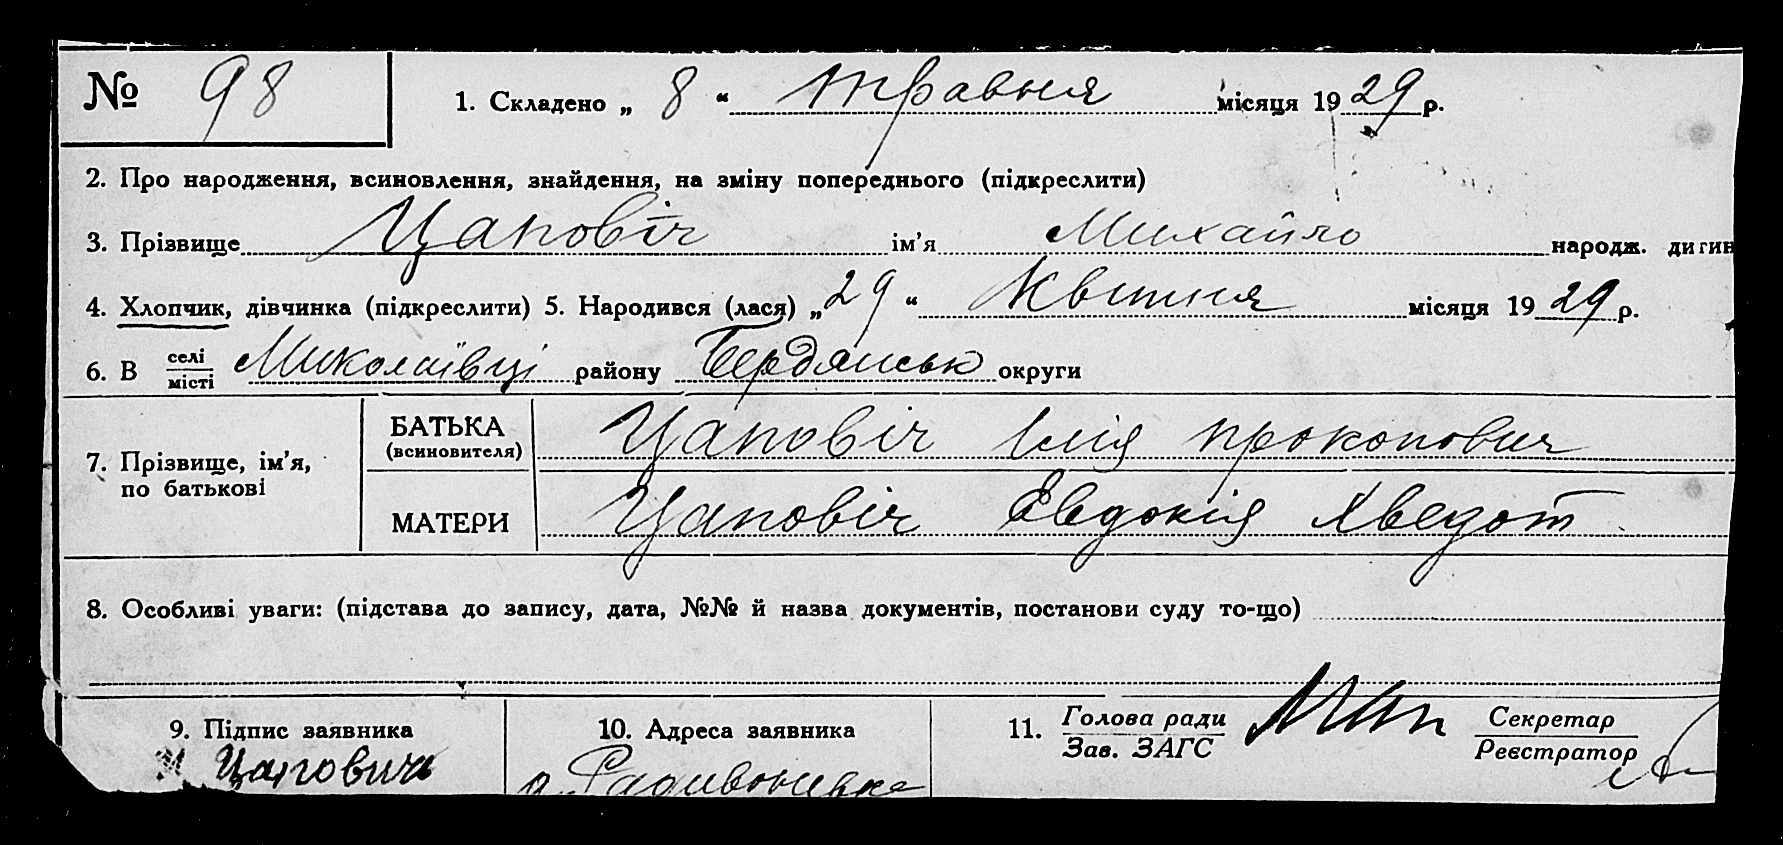 № 98 1. Складено „ 8 “ травня місяця 19 29 р.
2. Про народження, всиновлення, знайдення, на зміну попереднього (підкреслити)
3. Прізвище Цаповіч ім’я Михайло народж. дитин
4. Хлопчик, дівчинка (підкреслити) 5. Народився (лася) „ 29 “ Квітня місяця 19 29 р.
6. В селі/місті Миколаївці району Бердянськ округи
7. Прізвище, ім’я, по батькові
БАТЬКА (всиновителя) Цаповіч Ілія прокопович
МАТЕРИ Цаповіч Евдокія Хведот
8. Особливі уваги: (підстава до запису, дата, №№ й назва документів, постанови суду то-що)
9. Підпис заявника 10. Адреса заявника 11. Голова ради/Зав. ЗАГС Секретар/Реєстратор
Цапович